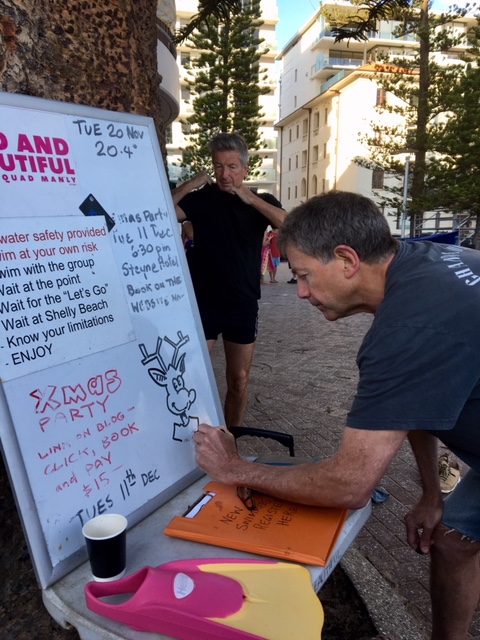 D AND
UTIFUL
SQUAD MANLY
TUE 20 NOV
20.4°
water safety provided
wim at your own risk
wim with the group
Wait at the point
Wait for the "Let's Go"
Wait at Shelly Beach
- Know your limitations
- ENJOY
mas Party
Tue 11 Dec
6:30 pm
Steyne Hotel
BOOK ON THE
WEBSITE
Xmas
PARTY
LINK ON BLOG -
CLICK, BOOK
and PAY
$15-
TUES 11th DEC
NEW
REGISTER
HERE